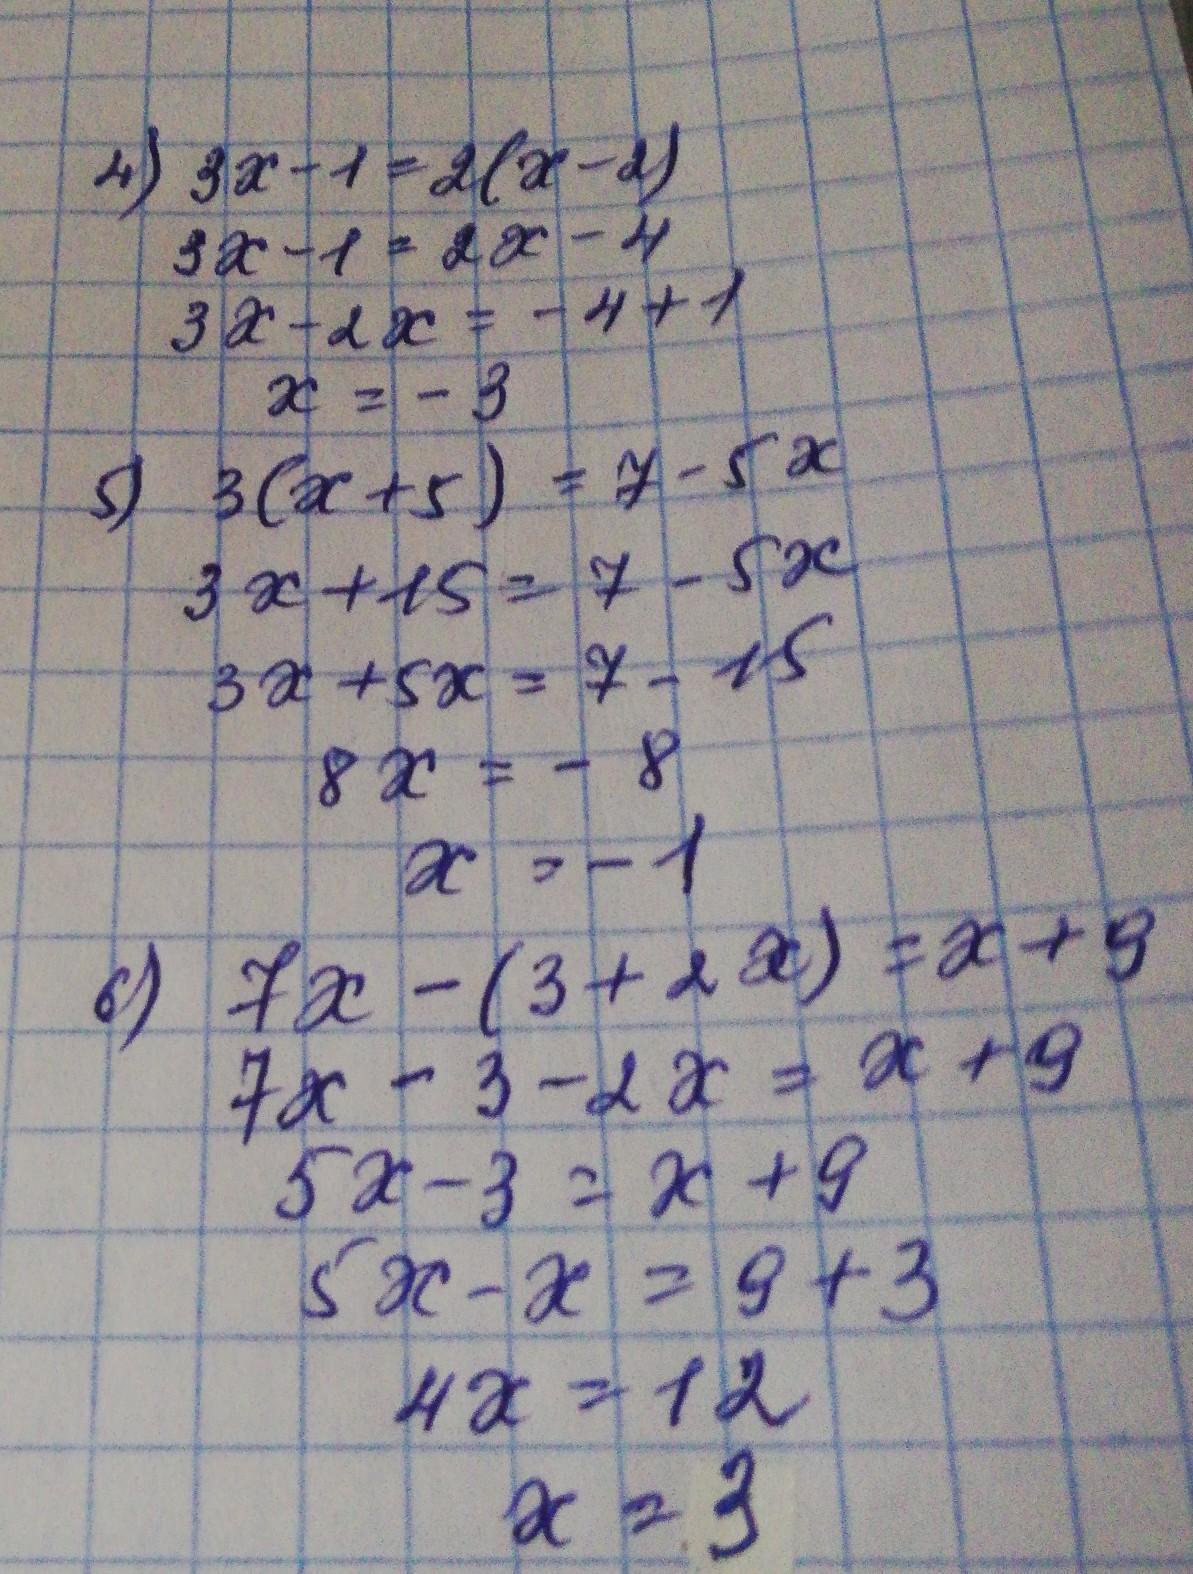 4) 3x-1=2(x-2)
3x-1=2x-4
3x-2x=-4+1
x=-3
5) 3(x+5)=7-5x
3x+15=7-5x
3x+5x=7-15
8x=-8
x=-1
6) 7x-(3+2x)=x+9
7x-3-2x=x+9
5x-3=x+9
5x-x=9+3
4x=12
x=3